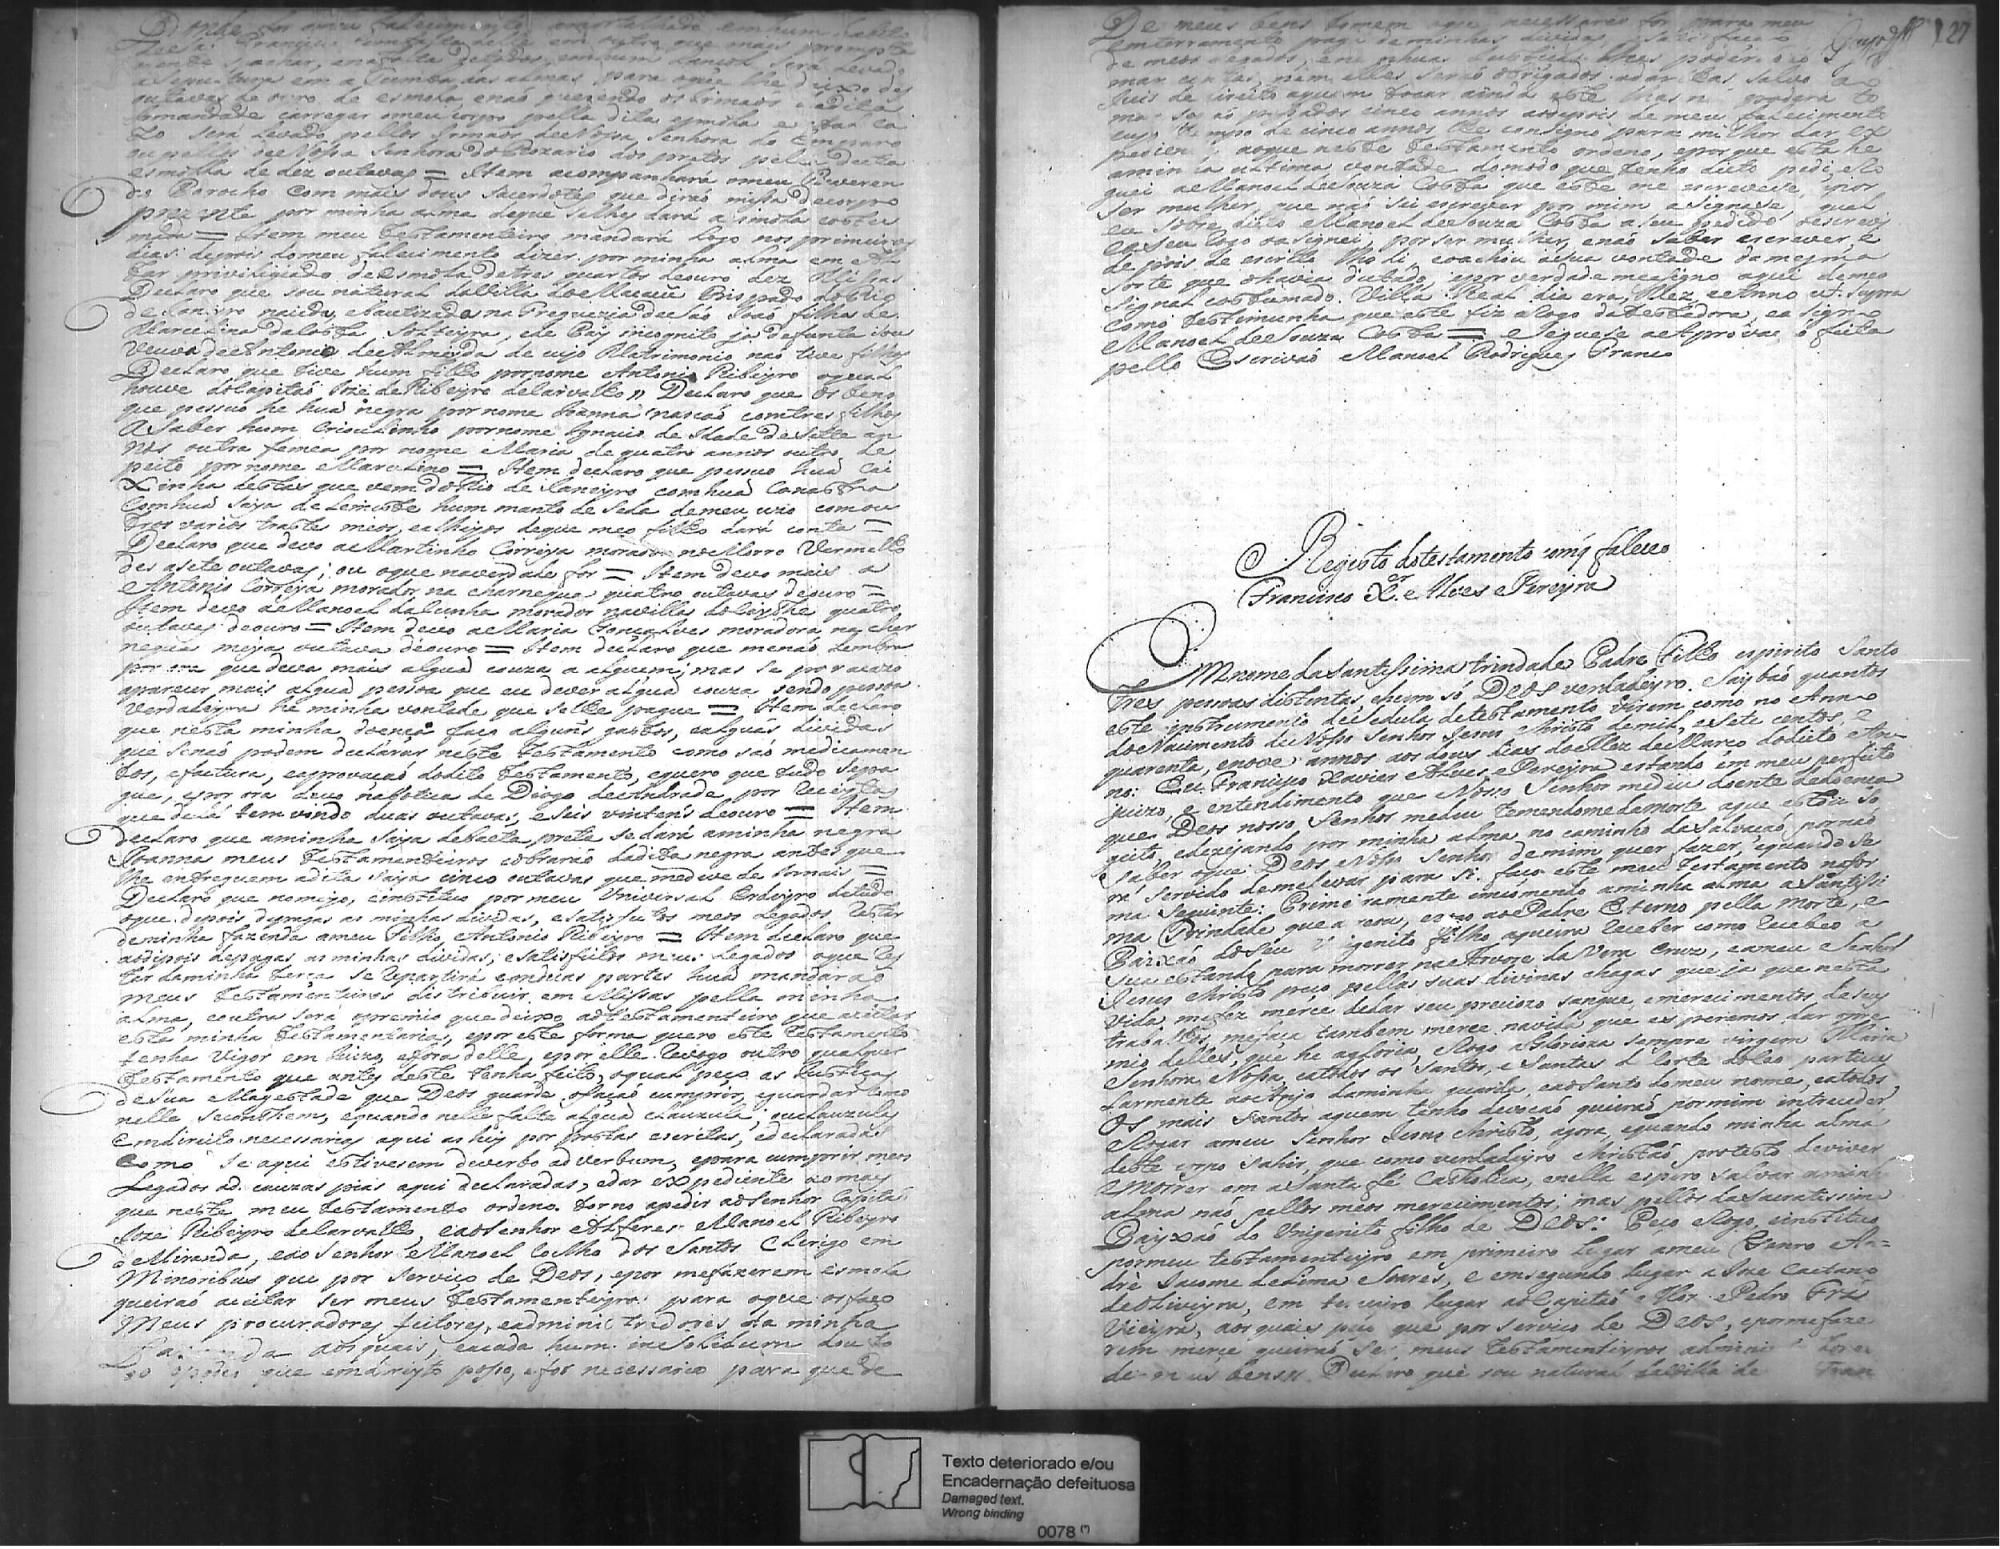 donde for o meu falecimento amortalhado em hum habito
de Saõ Francisco
mente se achar, e na falta
a sepultura em a tumba das almas para o que lhe deixo des
outavas de ouro de esmola, e naõ querendo os Irmaõs da dita
Irmandade carregar o meu corpo pella dita esmolla e
zo será levado pellos Irmaõs de Nossa Senhora do Emparo
ou pellos de Nossa Senhora do Rozario dos pretos pella dita
esmolla de dez outavas = Item acompanhará o meu Reveren
do Parocho com mais dous sacerdotes que diraõ missa de corpo
prezente por minha alma de que se lhes dará a esmola costu
mada = Item meu testamenteiro mandará logo nos primeiros
dias depois do meu falecimento dizer por minha alma em Al
tar privilegiado de esmola de tres quartos de ouro dez Missas
Declaro que sou natural da Villa de Macacú Bispado do Rio
de Janeiro nacida, e bautizada na Freguezia de Saõ Joaõ filha de
Marcelina da Costa, solteyra, e de Pay incognito ja defunta sou
Veuva de Antonio de Almeyda de cujo Matrimonio naõ tive filhos
Declaro que tive hum filho por nome Antonio Ribeyro o qual
houve do Capitaõ Joze de Ribeyro de Carvalho,, Declaro que os bens
que pessuo he huã negra por nome Joanna nasçaõ com tres filhos
A saber hum crioulinho por nome Ignacio de Idade de sette an
nos outra femea por nome Maria de quatro annos outro de
peito por nome Marcelino = Item declaro que pessuo huã cai
xinha destas que vem do Rio de Janeyro com huã canastra
com huã saya de Lemiste hum manto de seda de meu uzo com ou
tros varios trastes meos, e alheyos de que meo filho dará conta =
Declaro que devo a Martinho Correya morador no Morro Vermelho
des a sete outavas; ou o que na verdade for = Item devo mais a
Antonio Correya morador na charneque quatro outavas de ouro =
Item devo a Manoel da Cunha morador na villa do Caythe quatro
outavas de ouro = Item devo a Maria Gonçalves moradora na char
neque meya outava de ouro = Item declaro que me naõ lembra
por ora que deva mais algua couza a alguem; mas se por acazo
aparecer mais algua pessoa que eu dever algua couza sendo pessoa
verdadeyra he minha vontade que se lhe pague = Item declaro
que nesta minha doença faço alguñs gastos, e alguãs dividas
que se naõ podem declarar neste testamento como saõ medicamen
tos, e factura, e aprovaçaõ do dito testamento, e quero que tudo se pa
gue, e por ora devo na botica de Diogo de Andrade por receitas
que de lá tem vindo duas outavas, e seis vinteñs de ouro = Item
declaro que a minha saya de baeta preta se dará a minha negra
Joanna meus testamenteiros cobraraõ da dita negra antes que
lhe entreguem a dita saya cinco outavas que me deve de jornais =
Declaro que nomeyo, e instituo por meu Universal Erdeyro de tudo
o que depois de pagas as minhas dividas, e satisfeitos meos legados restar
de minha fazenda a meu filho Antonio Ribeyro = Item declaro que
ao dipois de pagas as minhas dividas, e satisfeitos meus legados o que res
tar da minha terça se repartirá em duas partes huã mandaraõ
meus testamenteiros distribuir em Missas pella minha
alma, e outra será o premio que deixo ao testamenteiro que aceitar
esta minha testamentaria, e por esta forma quero este testamento
tenha vigor em Juizo, e fora delle, e por elle revogo outro qualquer
testamento que antes deste tenha feito, o qual peço as Justiças
de Sua Magestade que Deos guarde, o façaõ cumprir, e guardar como
nelle se conthem, e quando nelle falte algua clauzula, ou clauzulas
em direito necessarias aqui as hey por postas escritas, e declaradas
como se aqui estivesem de verbo ad verbum, e para cumprir meos
legados ad cauzas pias aqui declaradas, e dar expediente ao mais
que neste meu testamento ordeno torno a pedir ao Senhor Capitaõ
Joze Ribeyro de Carvalho, e ao Senhor Alferes Manoel Ribeyro
de Miranda, e ao Senhor Manoel Coelho dos Santos Clerigo em
Minoribus que por serviço de Deos, e por me fazerem esmola
queiraõ aceitar ser meus testamenteyros para o que os faço
Meus procuradores feitores, e administradores da minha
Fazenda aos quais, e a cada hum in solidum dou to
do o poder que em direyto posso, e for necessario para que de
De meus bens tomem o que necessario for para meu
enterramento paga de minhas dividas, e satisfaçaõ
de meos legados, e nenhuas Justiças lhes poderáõ to
mar contas, nem elles seraõ obrigados a dar Cas, salvo o
Juis de direito a quem tocar ainda este lhas naõ poderá to
mar senaõ passados cinco annos ao depois de meu falecimento
cujo tempo de cinco annos lhe consigno para milhor dar ex
pediente ao que neste testamento ordeno, e porque esta he
a minha ultima vontade do modo que tenho dito pedi, e ro
guei a Manoel de Souza Costa que este me escrevese por
ser mulher, que naõ sei escrever por mim asignase, e qual
eu sobredito Manoel de Souza Costa a seu pedido escrevi
e a seu rogo o asignei, por ser mulher, e naõ saber escrever, e
depois de escrito lho li, e o achou a sua vontade da mesma
sorte que o havia dictado, e por verdade me asigno aqui de meo
signal costumado. Villa Real dia era, Mez, e Anno ut supra
Como testimunha que este fiz a rogo da testadora, e a signo
Manoel de Souza Costa = e seguese a Aprovaçaõ feita
pello Escrivaõ Manoel Rodrigues Franco
127
Registo do testamento com q faleceo
Francisco X.er Alves Pereyra
Em nome da Santissima trindade Padre Filho espirito Santo
tres pessoas distintas, e hum só Deos verdadeyro. Saybaõ quantos
este instrumento de sedula de testamento virem como no Anno
do Nacimento de Nosso Senhor Jesus Christo de mil, e sete centos, e
quarenta, e nove annos aos dous dias do Mez de Março do dito An-
no: Eu Francisco Xavier Alves Pereyra estando em meu perfeito
juizo, e entendimento que Nosso Senhor me deu doente de doença
que Deos nosso Senhor me deu temendome da morte a que estou so
geito, e dezejando por minha alma no caminho da salvaçaõ por naõ
saber o que Deos Nosso Senhor de mim quer fazer, e quando se
rá servido de me levar para si, faço este meu testamento na for
ma seguinte: Primeiramente encomendo a minha alma a Santissi
ma Trindade que a creou, e rogo ao Padre Eterno pella morte, e
Paixaõ do seu Unigenito filho a queira receber como recebeo a
sua estando para morrer na Arvore da Vera Cruz, e a meu Senhor
Jesus Christo peço pellas suas divinas chagas que ja que nesta
vida me fez merce de dar seu preciozo sangue, e merecimentos de seus
trabalhos, me faça tambem merce na vida que esperemos dar o pre
mio delles, que he a gloria, e Rogo a Glorioza sempre virgem Maria
Senhora Nossa, e a todos os Santos, e Santas da Corte do Ceo particu
larmente ao Anjo da minha guarda, e ao Santo do meu nome, e a todos
os mais Santos a quem tenho devoçaõ queiraõ por mim intraceder
e Rogar a meu Senhor Jesus Christo, agora, e quando minha alma
deste corpo sahir, que como verdadeyro Christaõ protesto de viver
e Morrer em a Santa fé Catholica, e nella espero salvar a minha
alma naõ pellos meos merecimentos; mas pellos da Sacratissima
Payxaõ do Unigenito filho de Deos: Peço e Rogo, e instituo
por meu testamenteyro em primeiro lugar a meu Genro An=
dré Jacome de Lima Soares, e em segundo lugar a Joze Caetano
de Oliveyra, em terceiro lugar ao Capitaõ Mor Pedro Frás
Vieyra, aos quais peço que por serviço de Deos, e por me faze
rem merce queiraõ ser meus testamenteyros administradores
de meus bens,, Declaro que sou natural da Villa de
Texto deteriorado e/ou
Encadernação defeituosa
Damaged text.
Wrong binding
0078 (*)